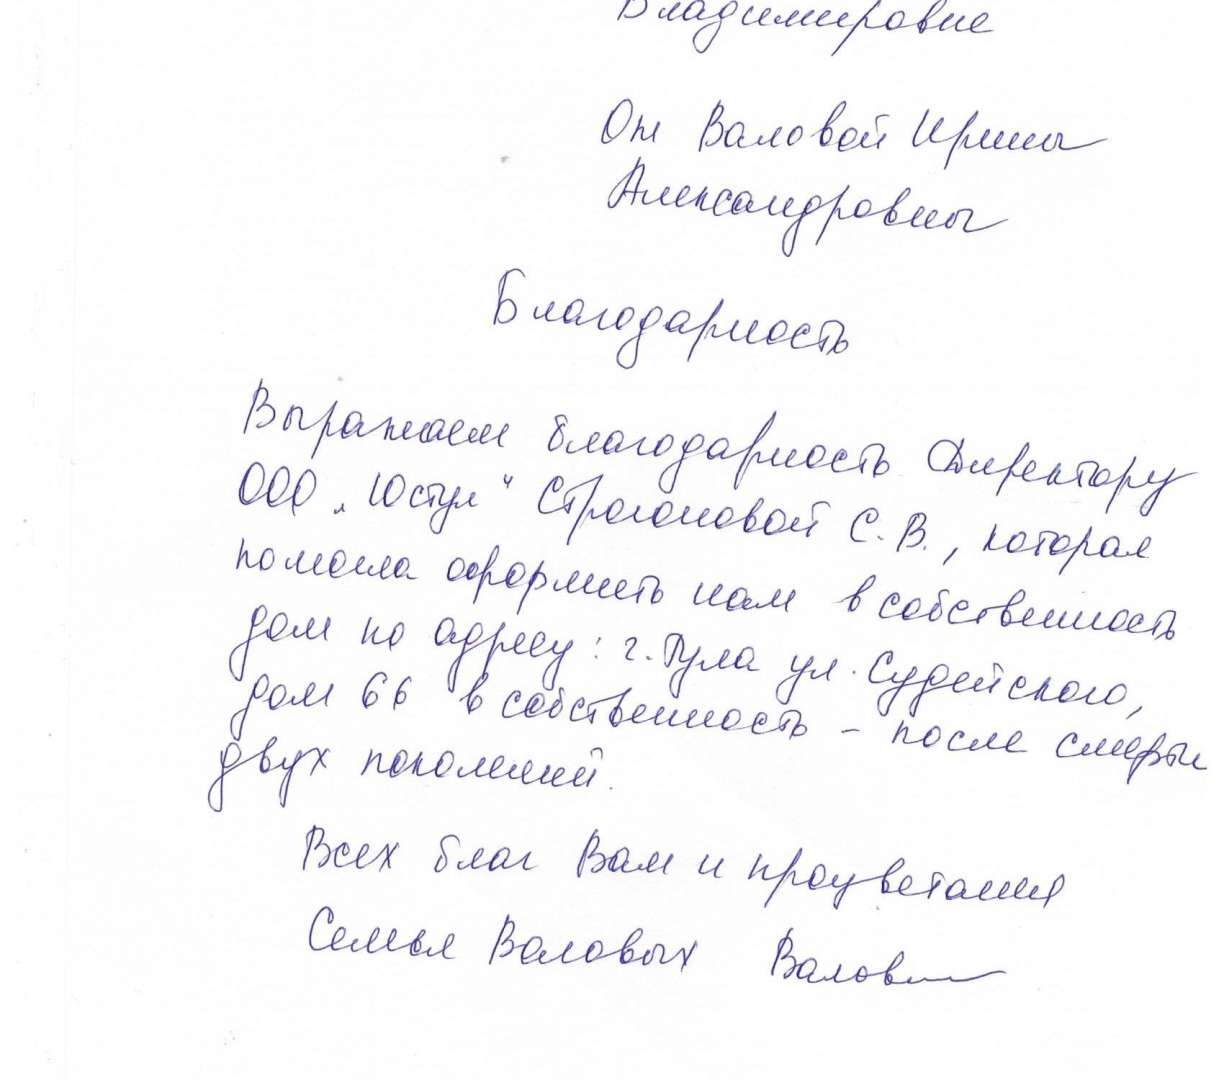 Владимировне
От Валовой Ирины
Александровны
Благодарность
Выражаем благодарность Директору
ООО „Юстул" Строгоновой С.В., которая
помогла оформить нам в собственность
дом по адресу: г. Тула ул. Судейского,
дом 66 в собственность - после смерти
двух поколений.
Всех благ Вам и процветания
Семья Валовых Валов